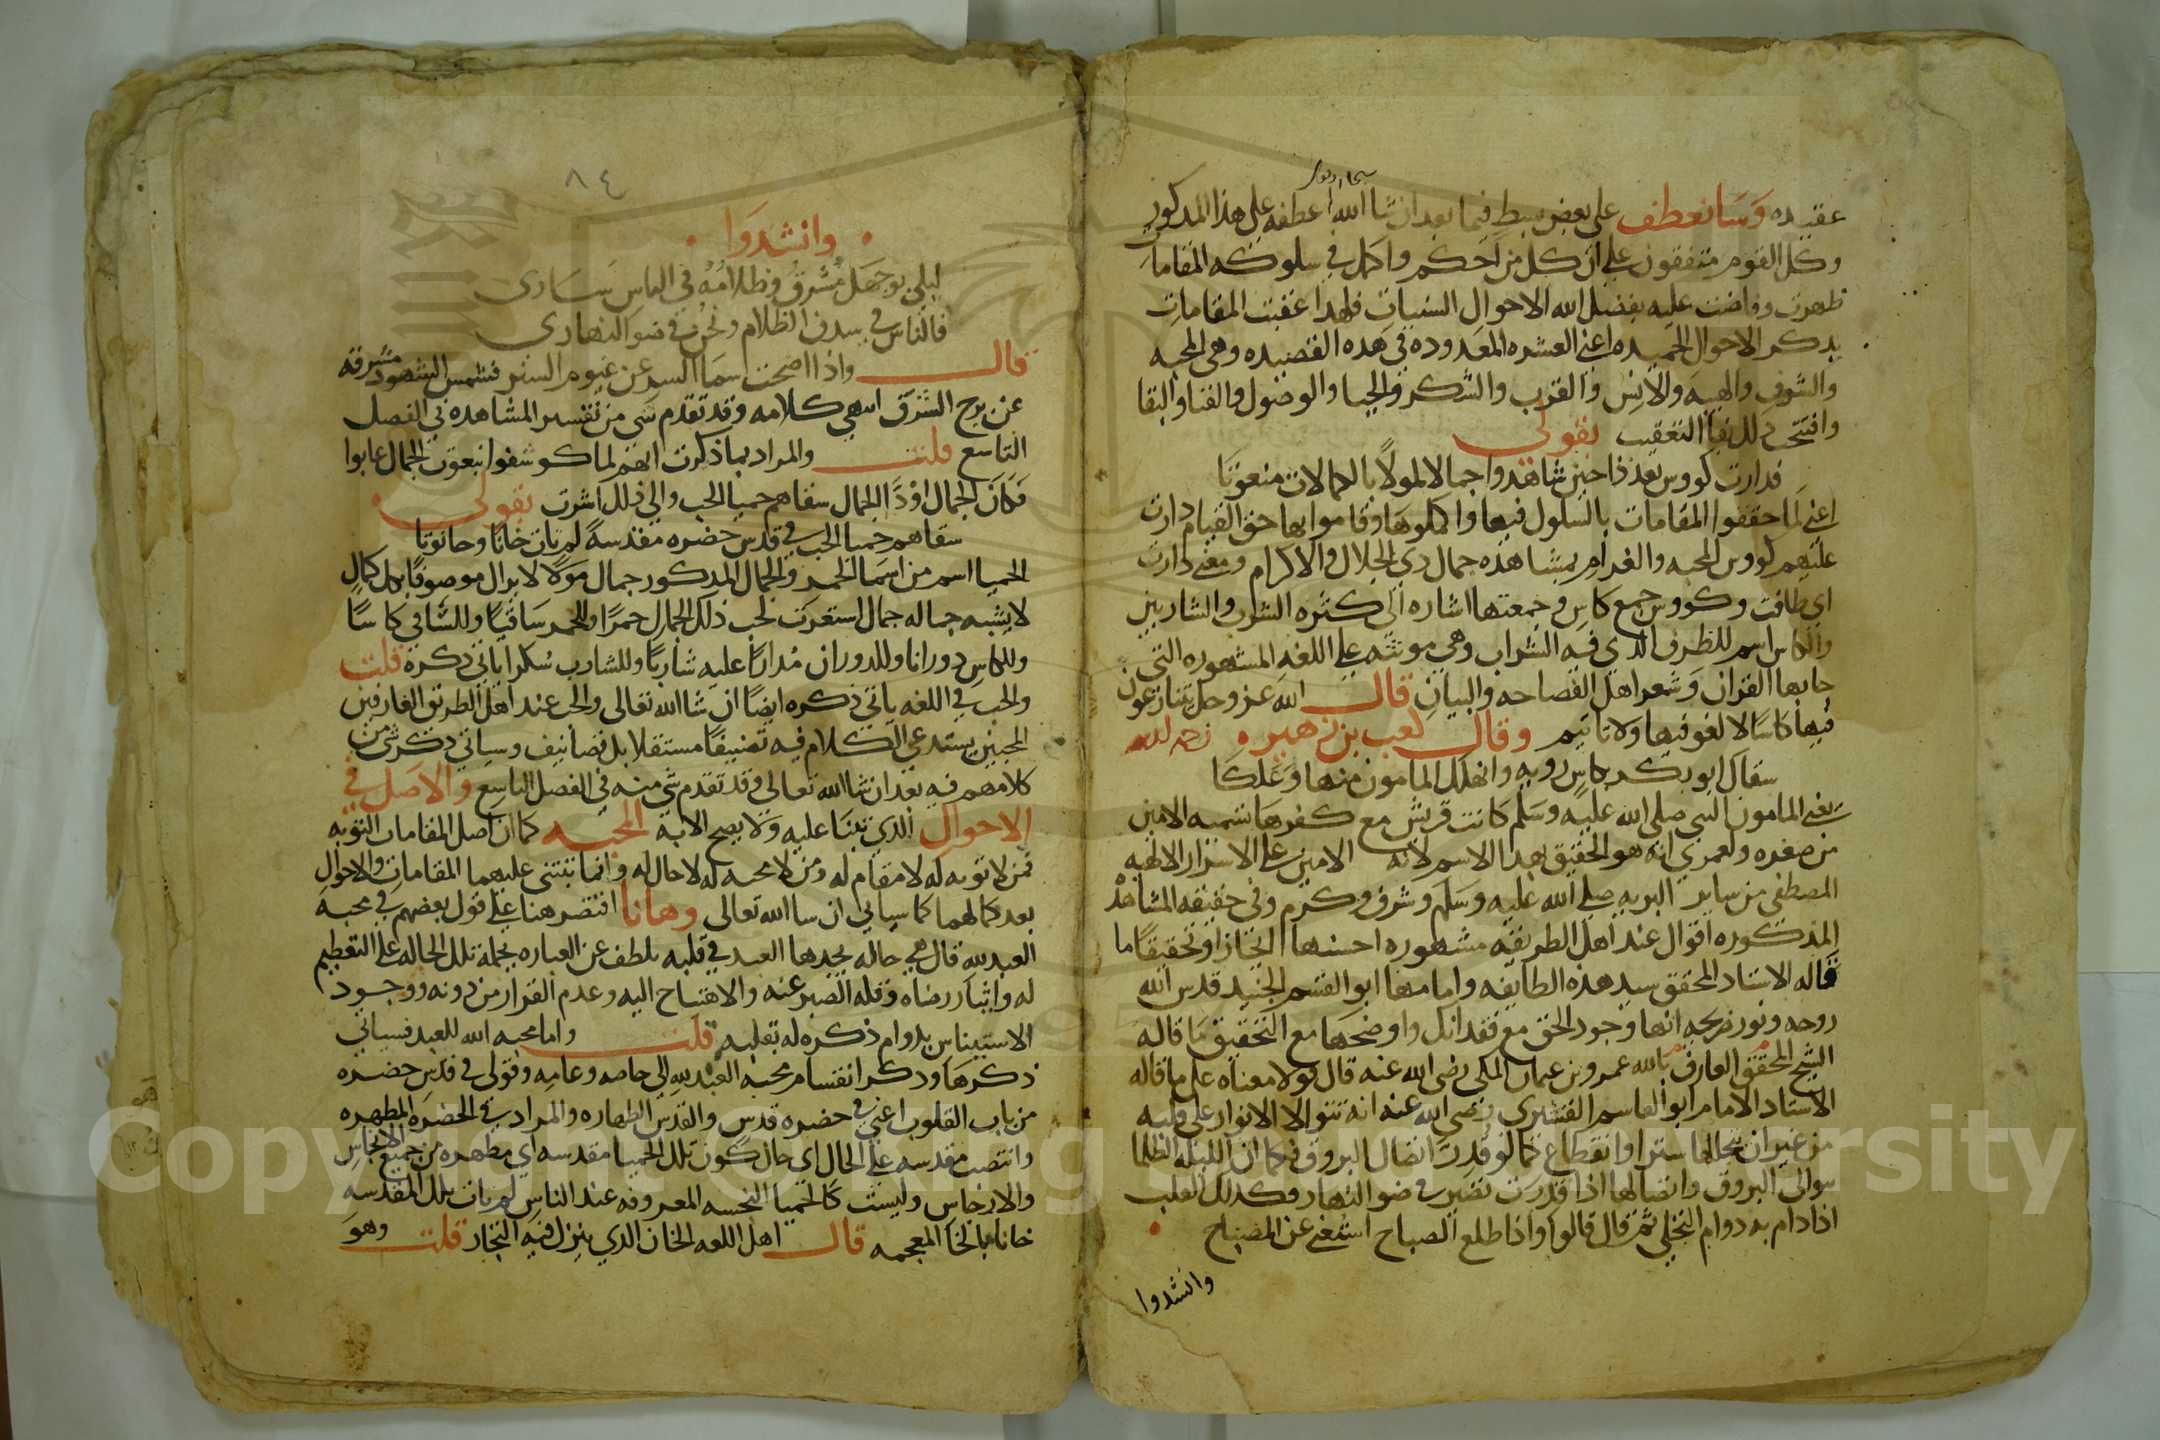 عقيده وسانعطف على بعض بسط فيما بعد ان شا الله اعطفه على هذا المذكور
وكل القوم متفقون على ان كل من احكم واكمل في سلوكه المقامات
ظهرت وفاضت عليه بفضل الله الاحوال السنيات فلهذا عقبت المقامات
بذكر الاحوال الحميده اعني العشره المعدوده في هذه القصيده وهي المحبه
والشوق والهيبه والانس والقرب والسكر والحيا والوصول والفنا والبقا
وافتتحت ذلك بفا التعقيب بقولي
فدارت كووس بعد ذا حين شاهدوا جمالا لمولا بالكمالات منعوتا
اعني لما حققوا المقامات بالسلوك فيها واكملوها وقاموا بها حق القيام دارت
عليهم كووس المحبه والغرام بمشاهده جمال ذي الجلال والاكرام ومعنى دارت
اي طافت وكووس جمع كاس وجمعتها اشاره الى كثره الشراب والشاربين
والكاس اسم للظرف الذي فيه الشراب وهي مونثه على اللغه المشهوره التي
جا بها القران وشعر اهل الفصاحه والبيان قال الله عز وجل يتنازعون
فيها كاسا لا لغو فيها ولا تاثيم وقال كعب بن زهير رحمه الله
سقاك ابو بكر بكاس رويه وانهلك المامون منها وعلكا
يعني المامون النبي صلى الله عليه وسلم كانت قريش مع كفرها تسميه الامين
من صغره ولعمري انه هو الحقيق بهذا الاسم لانه الامين على الاسرار الالهيه
المصطفى من ساير البريه صلى الله عليه وسلم وشرف وكرم وفي حقيقه المشاهده
المذكوره اقوال عند اهل الطريقه مشهوره احسنها ايجازا وتحقيقا ما
قاله الاستاد المحقق سيد هذه الطايفه وامامها ابو القسم الجنيد قدس الله
روحه ونور ضريحه انها وجود الحق مع فقدانك واوضحها مع التحقيق ما قاله
الشيخ المحقق العارف بالله عمرو بن عثمان المكي رضي الله عنه قال قولا معناه على ما قاله
الاستاد الامام ابو القاسم القشيري رضي الله عنه انه تتوالا الانوار على قلبه
من غير ان يتخللها ستر او انقطاع كما لو قدرت اتصال البروق فكما ان الليله الظلما
بتوالي البروق واتصالها اذا قدرت تصير في ضو النهار وكذلك القلب
اذا دام به دوام التجلي ثم قال قالوا واذا طلع الصباح استغني عن المصباح
وانشدوا
٨٤
وانشدوا
ليلي بوجهك مشرق وظلامه في الناس ساري
فالناس في سدف الظلام ونحن في ضو النهاري
قال واذا اصحت سما السر عن غيوم الستر فشمس الشهود مشرقه
عن برج الشرف انتهى كلامه وقد تقدم شي من تفسير المشاهده في الفصل
التاسع قلت والمراد بما ذكرت انهم لما كوشفوا بنعوت الجمال غابوا
فكان الجمال او ذا الجمال سقاهم حميا الحب والى ذلك اشرت بقولي
سقاهم حميا الحب في قدس حضره مقدسة لم تات خانا وحانوتا
الحميا اسم من اسما الخمر والجمال المذكور جمال مولا لا يزال موصوفا بكل كمال
لا يشبه جماله جمال استعرت لحب ذلك الجمال خمرا وللخمر ساقيا وللساقي كاسا
وللكاس دورانا وللدوران مدارا عليه شاربا وللشارب سكرا ياتي ذكره قلت
والحب في اللغه ياتي ذكره ايضا ان شا الله تعالى والحب عند اهل الطريق العارفين
المحبين يستدعي الكلام فيه تصنيفا مستقلا بل تصانيف وسياتي ذكر شي من
كلامهم فيه بعد ان شا الله تعالى وقد تقدم شي منه في الفصل التاسع والاصل في
الاحوال الذي تبنا عليه ولا يصح الا به المحبه كما ان اصل المقامات التوبه
فمن لا توبه له لا مقام له ومن لا محبه له لا حال له وانما تبتنى عليهما المقامات والاحوال
بعد كمالهما كما سياتي ان شا الله تعالى وهانا اقتصر هنا على قول بعضهم في محبه
العبد لله قال هي حاله يجدها العبد في قلبه تلطف عن العباره يحمله تلك الحاله على التعظيم
له وايثار رضاه وقله الصبر عنه والاهتياج اليه وعدم القرار من دونه ووجود
الاستيناس بدوام ذكره له بقلبه قلت واما محبه الله للعبد فسياتي
ذكرها وذكر انقسام محبه العبد لله الى خاصه وعامه وقولي في قدس حضره
من باب القلوب اعني في حضره قدس والقدس الطهاره والمراد في الحضره المطهره
وانتصب مقدسه على الحال اي حال كون تلك الحميا مقدسه اي مطهره من جميع الانجاس
والارجاس وليست كالحميا النجسه المعروفه عند الناس لم تات تلك المقدسه
خانا بالخا المعجمه قال اهل اللغه الخان الذي ينزل فيه التجار قلت وهو
Copyright © King Saud University